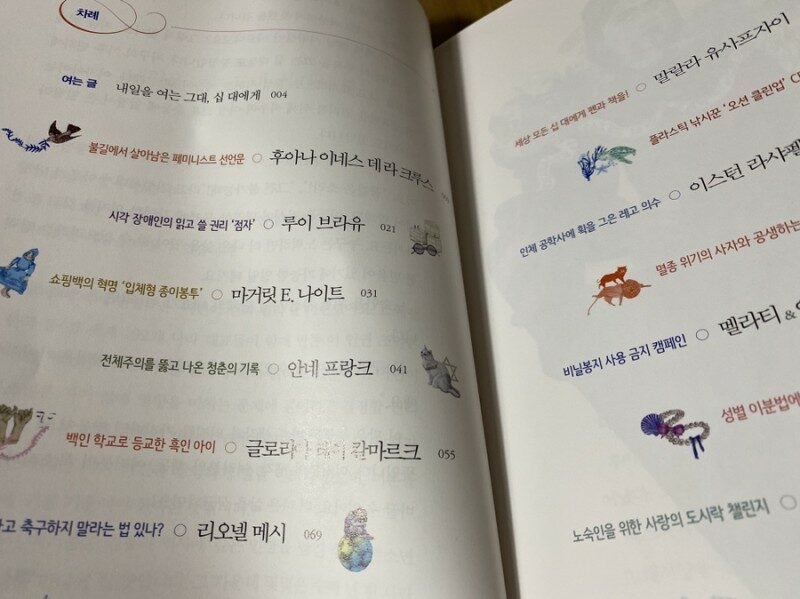 차례
여는 글 내일을 여는 그대, 십 대에게 004
불길에서 살아남은 페미니스트 선언문 ○ 후아나 이네스 데 라 크루스
시각 장애인의 읽고 쓸 권리 '점자' ○ 루이 브라유 021
쇼핑백의 혁명 '입체형 종이봉투' ○ 마거릿 E. 나이트 031
전체주의를 뚫고 나온 청춘의 기록 ○ 안네 프랑크 041
백인 학교로 등교한 흑인 아이 ○ 글로리아 레이 칼마르크 055
고 축구하지 말라는 법 있나? ○ 리오넬 메시 069
세상 모든 십 대에게 펜과 책을! ○ 말랄라 유사프자이
플라스틱 낚시꾼 '오션 클린업' C
인체 공학사에 획을 그은 레고 의수 ○ 이스턴 라샤펠
멸종 위기의 사자와 공생하는
비닐봉지 사용 금지 캠페인 ○ 멜라티 &
성별 이분법에
노숙인을 위한 사랑의 도시락 챌린지 ○